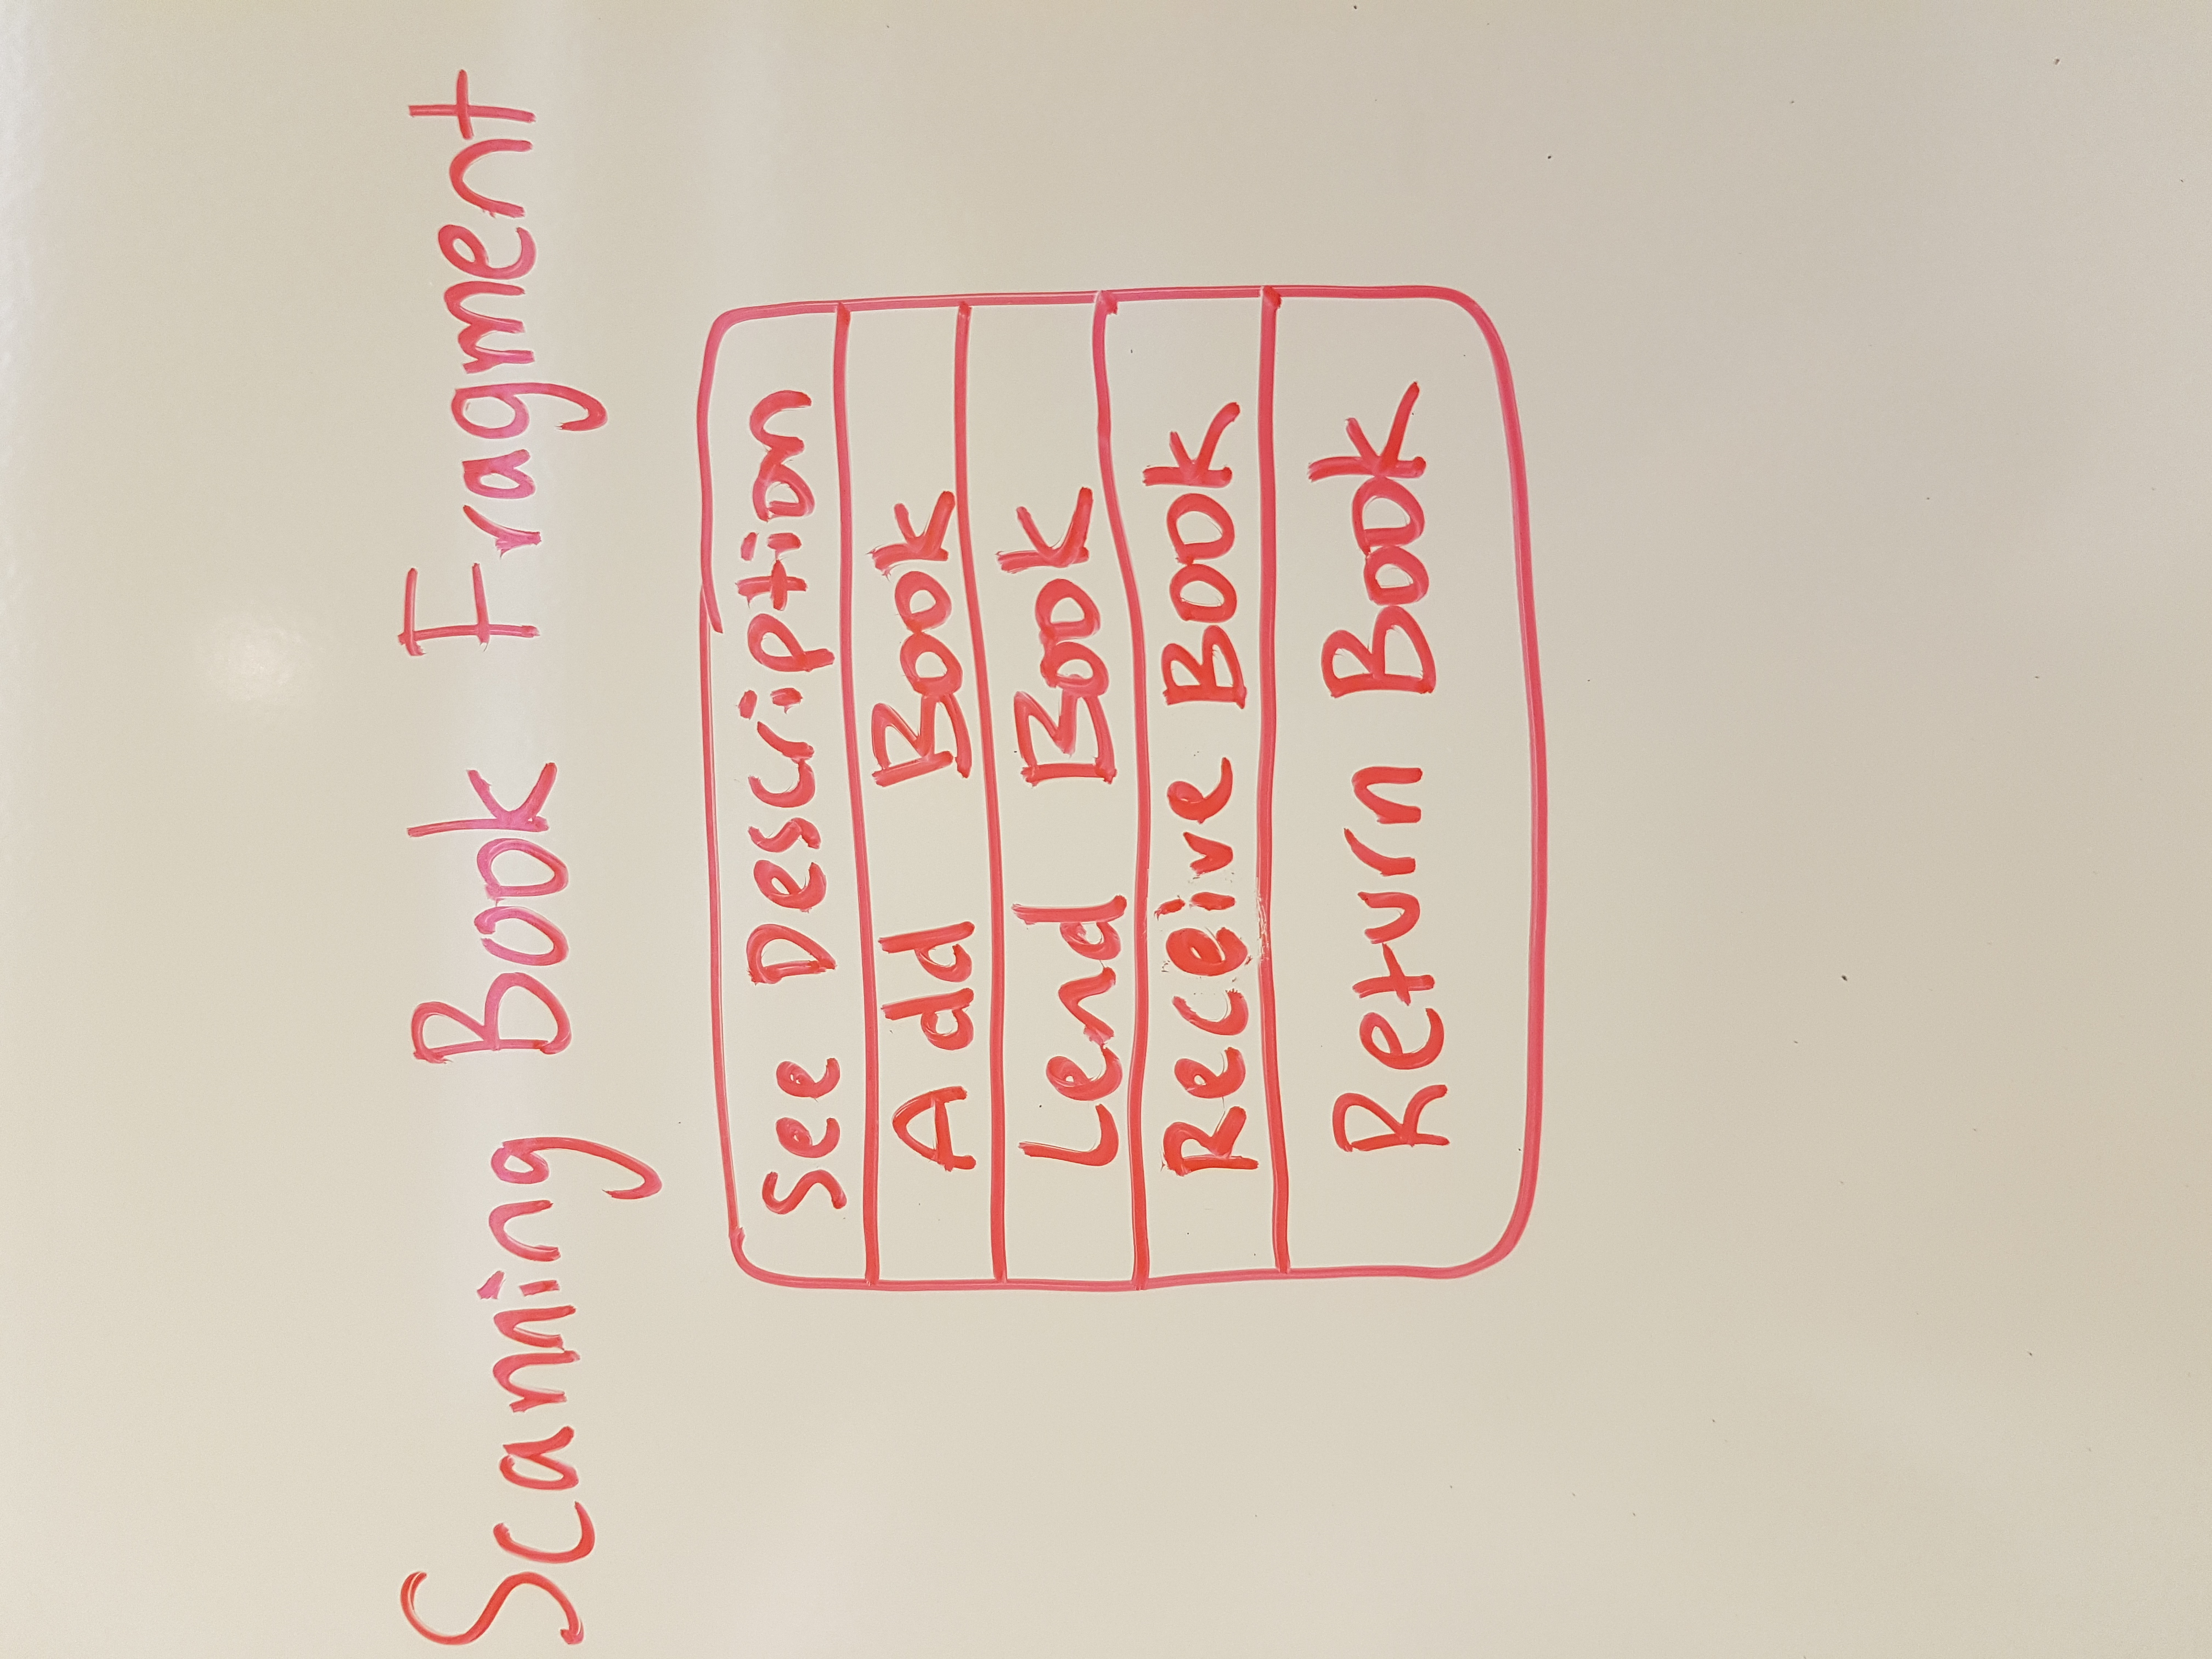 Scanning Book Fragment
See Description
Add Book
Lend Book
Receive Book
Return Book